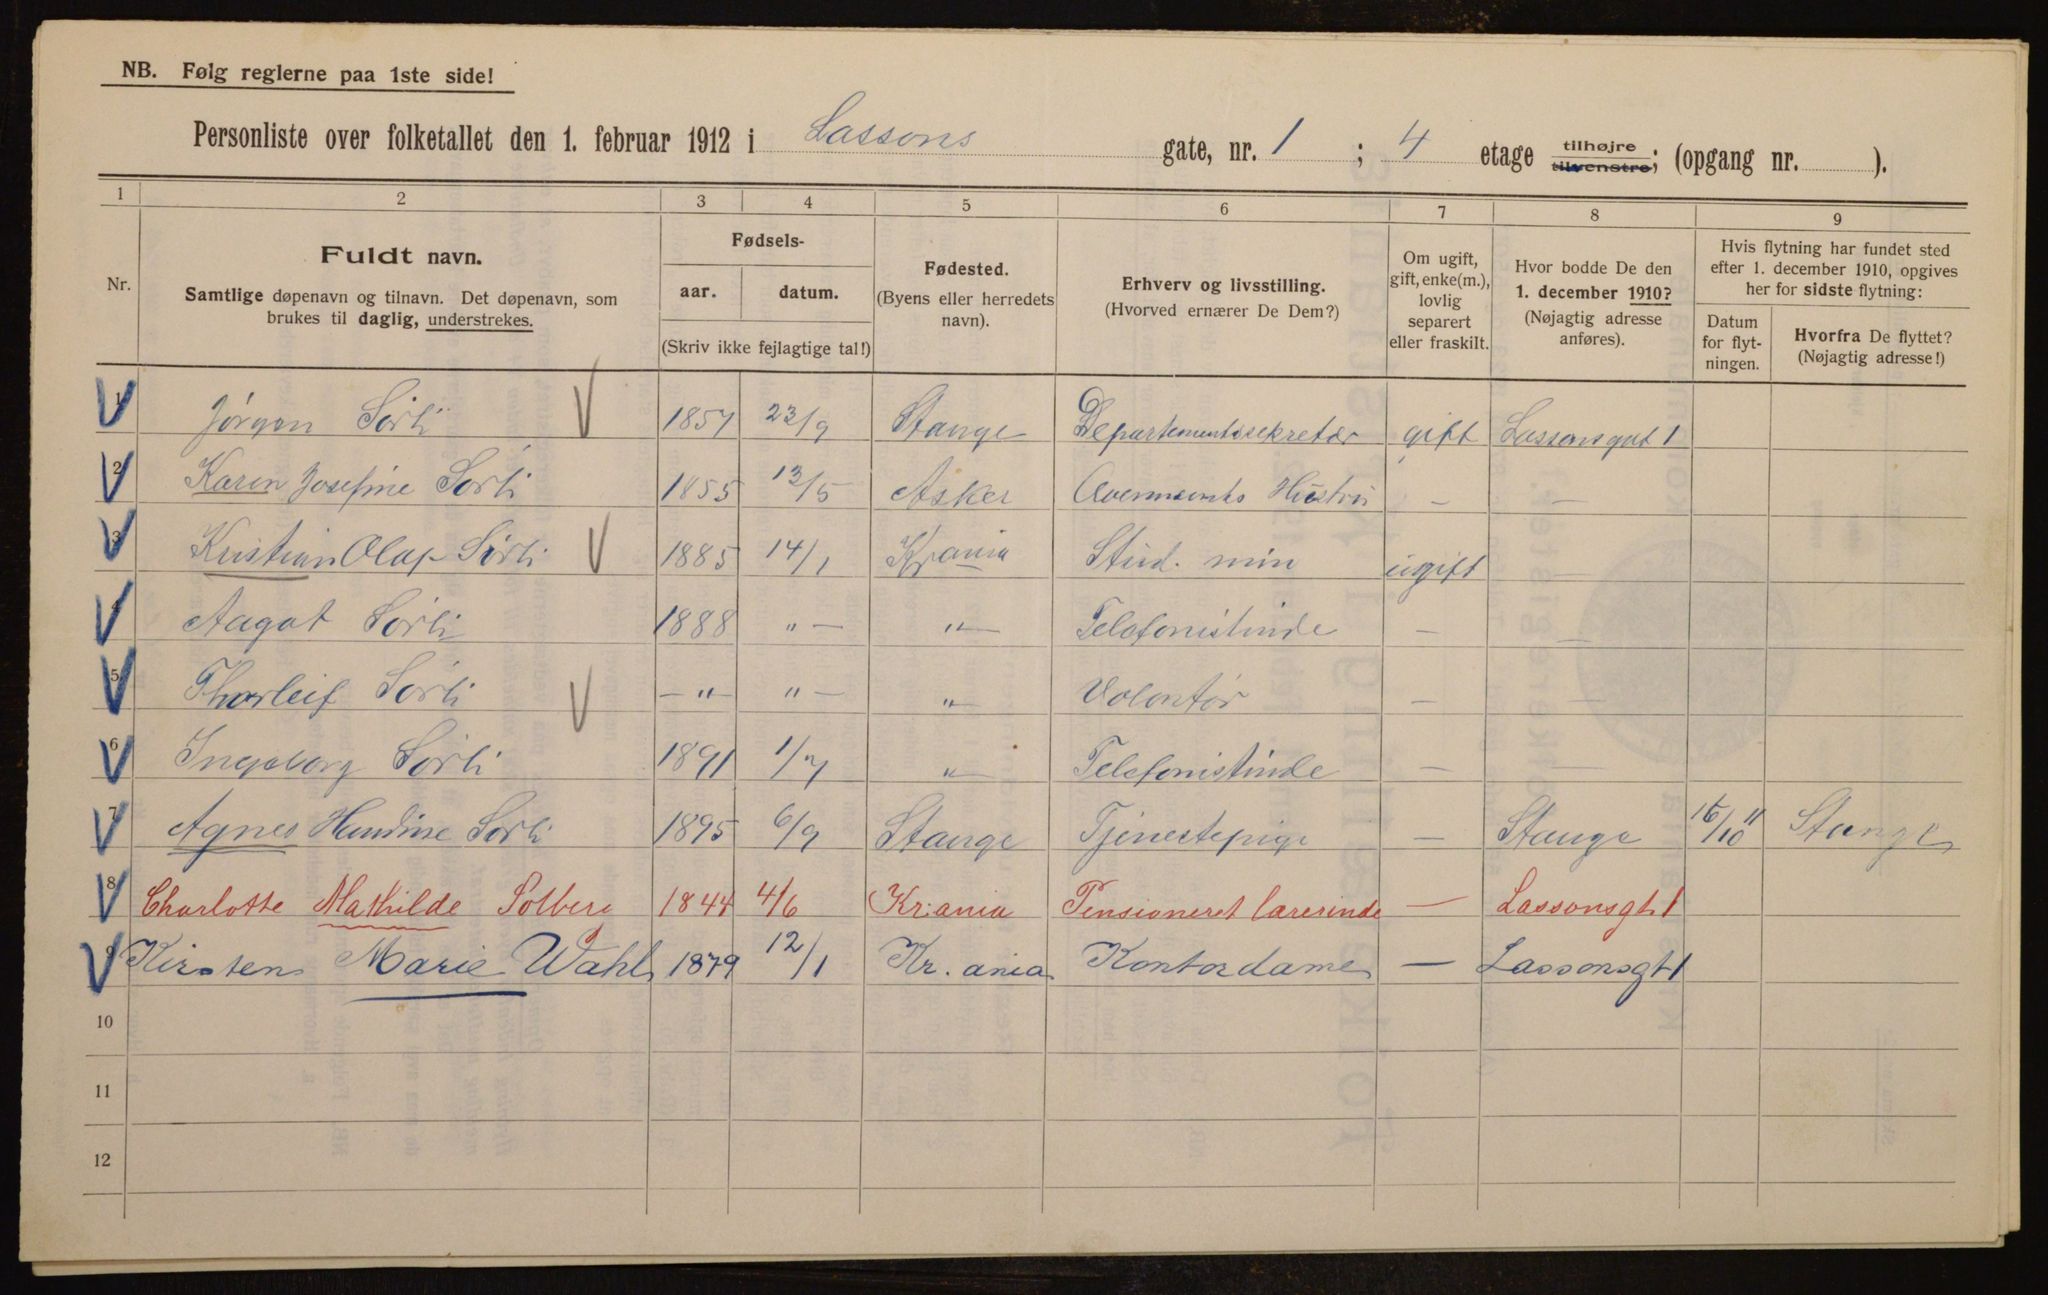 NB. Følg reglerne paa 1ste side!
Personliste over folketallet den 1. februar 1912 i Lassons gate, nr. 1 ; 4 etage tilhøjre tilvenstre; (opgang nr. ).
1 2 3 4 5 6 7 8 9
Nr.
Fuldt navn.
Samtlige døpenavn og tilnavn. Det døpenavn, som
brukes til daglig, understrekes.
Fødsels-
aar. datum.
(Skriv ikke fejlagtige tal!)
Fødested.
(Byens eller herredets
navn).
Erhverv og livsstilling.
(Hvorved ernærer De Dem?)
Om ugift,
gift, enke(m.),
lovlig
separert
eller fraskilt.
Hvor bodde De den
1. december 1910?
(Nøjagtig adresse
anføres).
Hvis flytning har fundet sted
efter 1. december 1910, opgives
her for sidste flytning:
Datum
for flyt-
ningen.
Hvorfra De flyttet?
(Nøjagtig adresse!)
1 Jørgen Sørli 1857 23/9 Stange Departementssekretær gift Lassonsgat 1
2 Karen Josefine Sørli 1855 13/5 Asker Hustru — —
3 Kristian Olaf Sørli 1885 14/1 Krania Stud. min ugift —
4 Aagot Sørli 1888 " — " — Telefonistinde — —
5 Thorleif Sørli — " — " — " Volontør — —
6 Ingeborg Sørli 1891 1/7 " Telefonistinde — —
7 Agnes Sørli 1895 6/9 Stange Tjenestepige — Stange 15/10 11 Stange
8 Charlotte Mathilde Solberg 1844 4/6 Kr.ania Pensioneret lærerinde — Lassonsgt 1
9 Kirsten Marie Wahl 1879 12/1 Kr. ania Kontordame — Lassonsgt 1
10
11
12